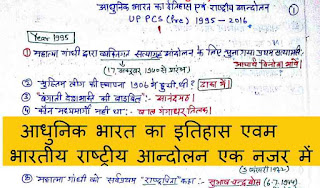 आधुनिक भारत का इतिहास एवं राष्ट्रीय आन्दोलन
UP PCS (Pre) 1995 - 2016
Year 1995
① महात्मा गांधी द्वारा व्यक्तिगत सत्याग्रह आंदोलन के लिए चुना गया प्रथम सत्याग्रही
(17 अक्टूबर 1940 से प्रारंभ)
आचार्य विनोबा भावे
② मुस्लिम लीग की स्थापना 1906 में हुयी थी? ढाका में
③ "बंगाली देशभक्ति की बाइबिल" :- आनन्दमठ
④ कौन मध्यमार्गी नहीं था - बाल गंगाधर तिलक
आधुनिक भारत का इतिहास एवम
भारतीय राष्ट्रीय आन्दोलन एक नजर में
महात्मा गांधी को सर्वप्रथम "राष्ट्रपिता" कहा :- सुभाष चन्द्र बोस